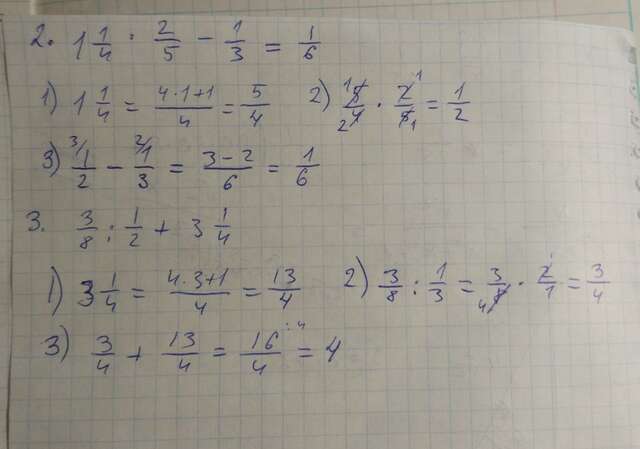 2. 1 1/4 · 2/5 - 1/3 = 1/6
1) 1 1/4 = 4·1+1/4 = 5/4 2) 5/4 · 2/5 = 1/2
3) 1/2 - 1/3 = 3-2/6 = 1/6
3. 3/8 : 1/2 + 3 1/4
1) 3 1/4 = 4·3+1/4 = 13/4 2) 3/8 : 1/3 = 3/8 · 2/1 = 3/4
3) 3/4 + 13/4 = 16/4 :4 = 4